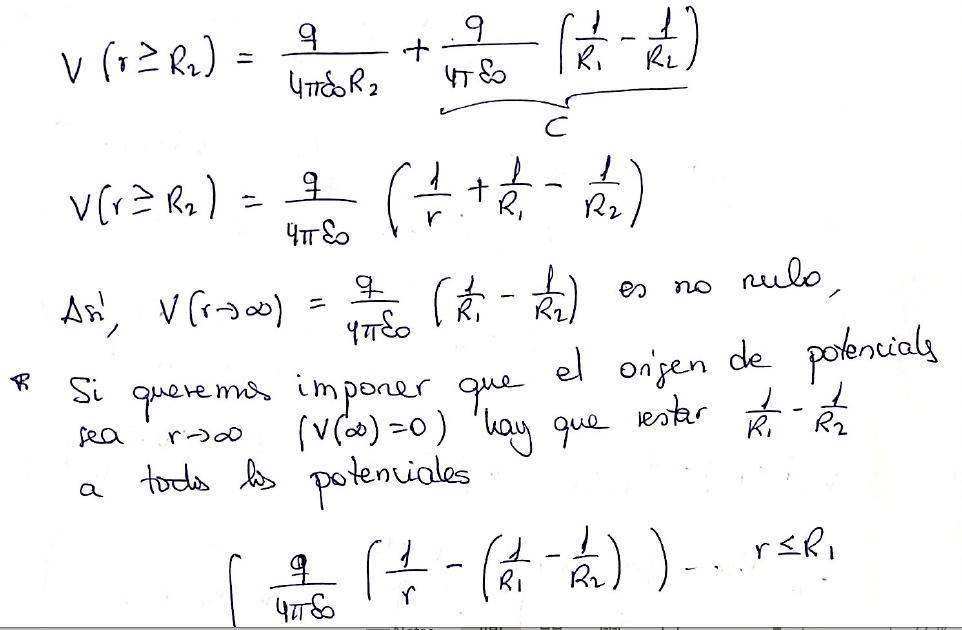 V (r ≥ R₂) = q / 4πε₀R₂ + q / 4πε₀ (1/R₁ - 1/R₂)
C
V(r ≥ R₂) = q / 4πε₀ (1/r + 1/R₁ - 1/R₂)
Así, V(r→∞) = q / 4πε₀ (1/R₁ - 1/R₂) es no nulo,
* Si queremos imponer que el origen de potencials
sea r→∞ (V(∞)=0) hay que restar 1/R₁ - 1/R₂
a todos los potenciales
{ q / 4πε₀ (1/r - (1/R₁ - 1/R₂)) ... r ≤ R₁